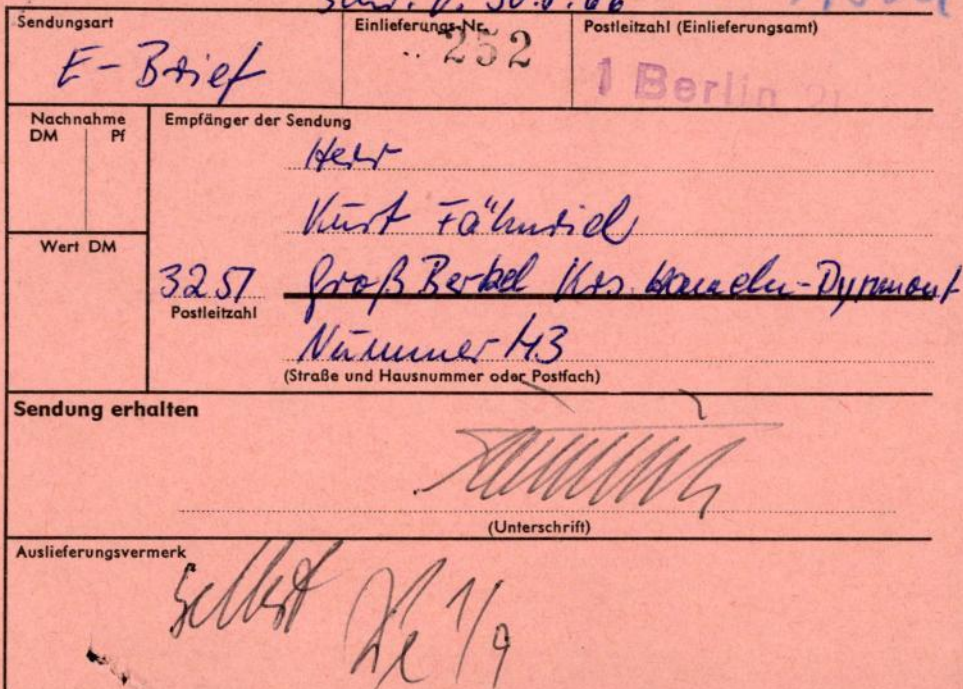 Schr. v. 30.8.66
Sendungsart
E-Brief
Einlieferungs-Nr.
252
Postleitzahl (Einlieferungsamt)
1 Berlin 21
Nachnahme
DM Pf
Empfänger der Sendung
Herr
Kurt Fähnrich
Wert DM
3257 Groß Berkel Krs. Hameln-Pyrmont
Postleitzahl
Nummer 43
(Straße und Hausnummer oder Postfach)
Sendung erhalten
(Unterschrift)
Auslieferungsvermerk
Selbst
1/9